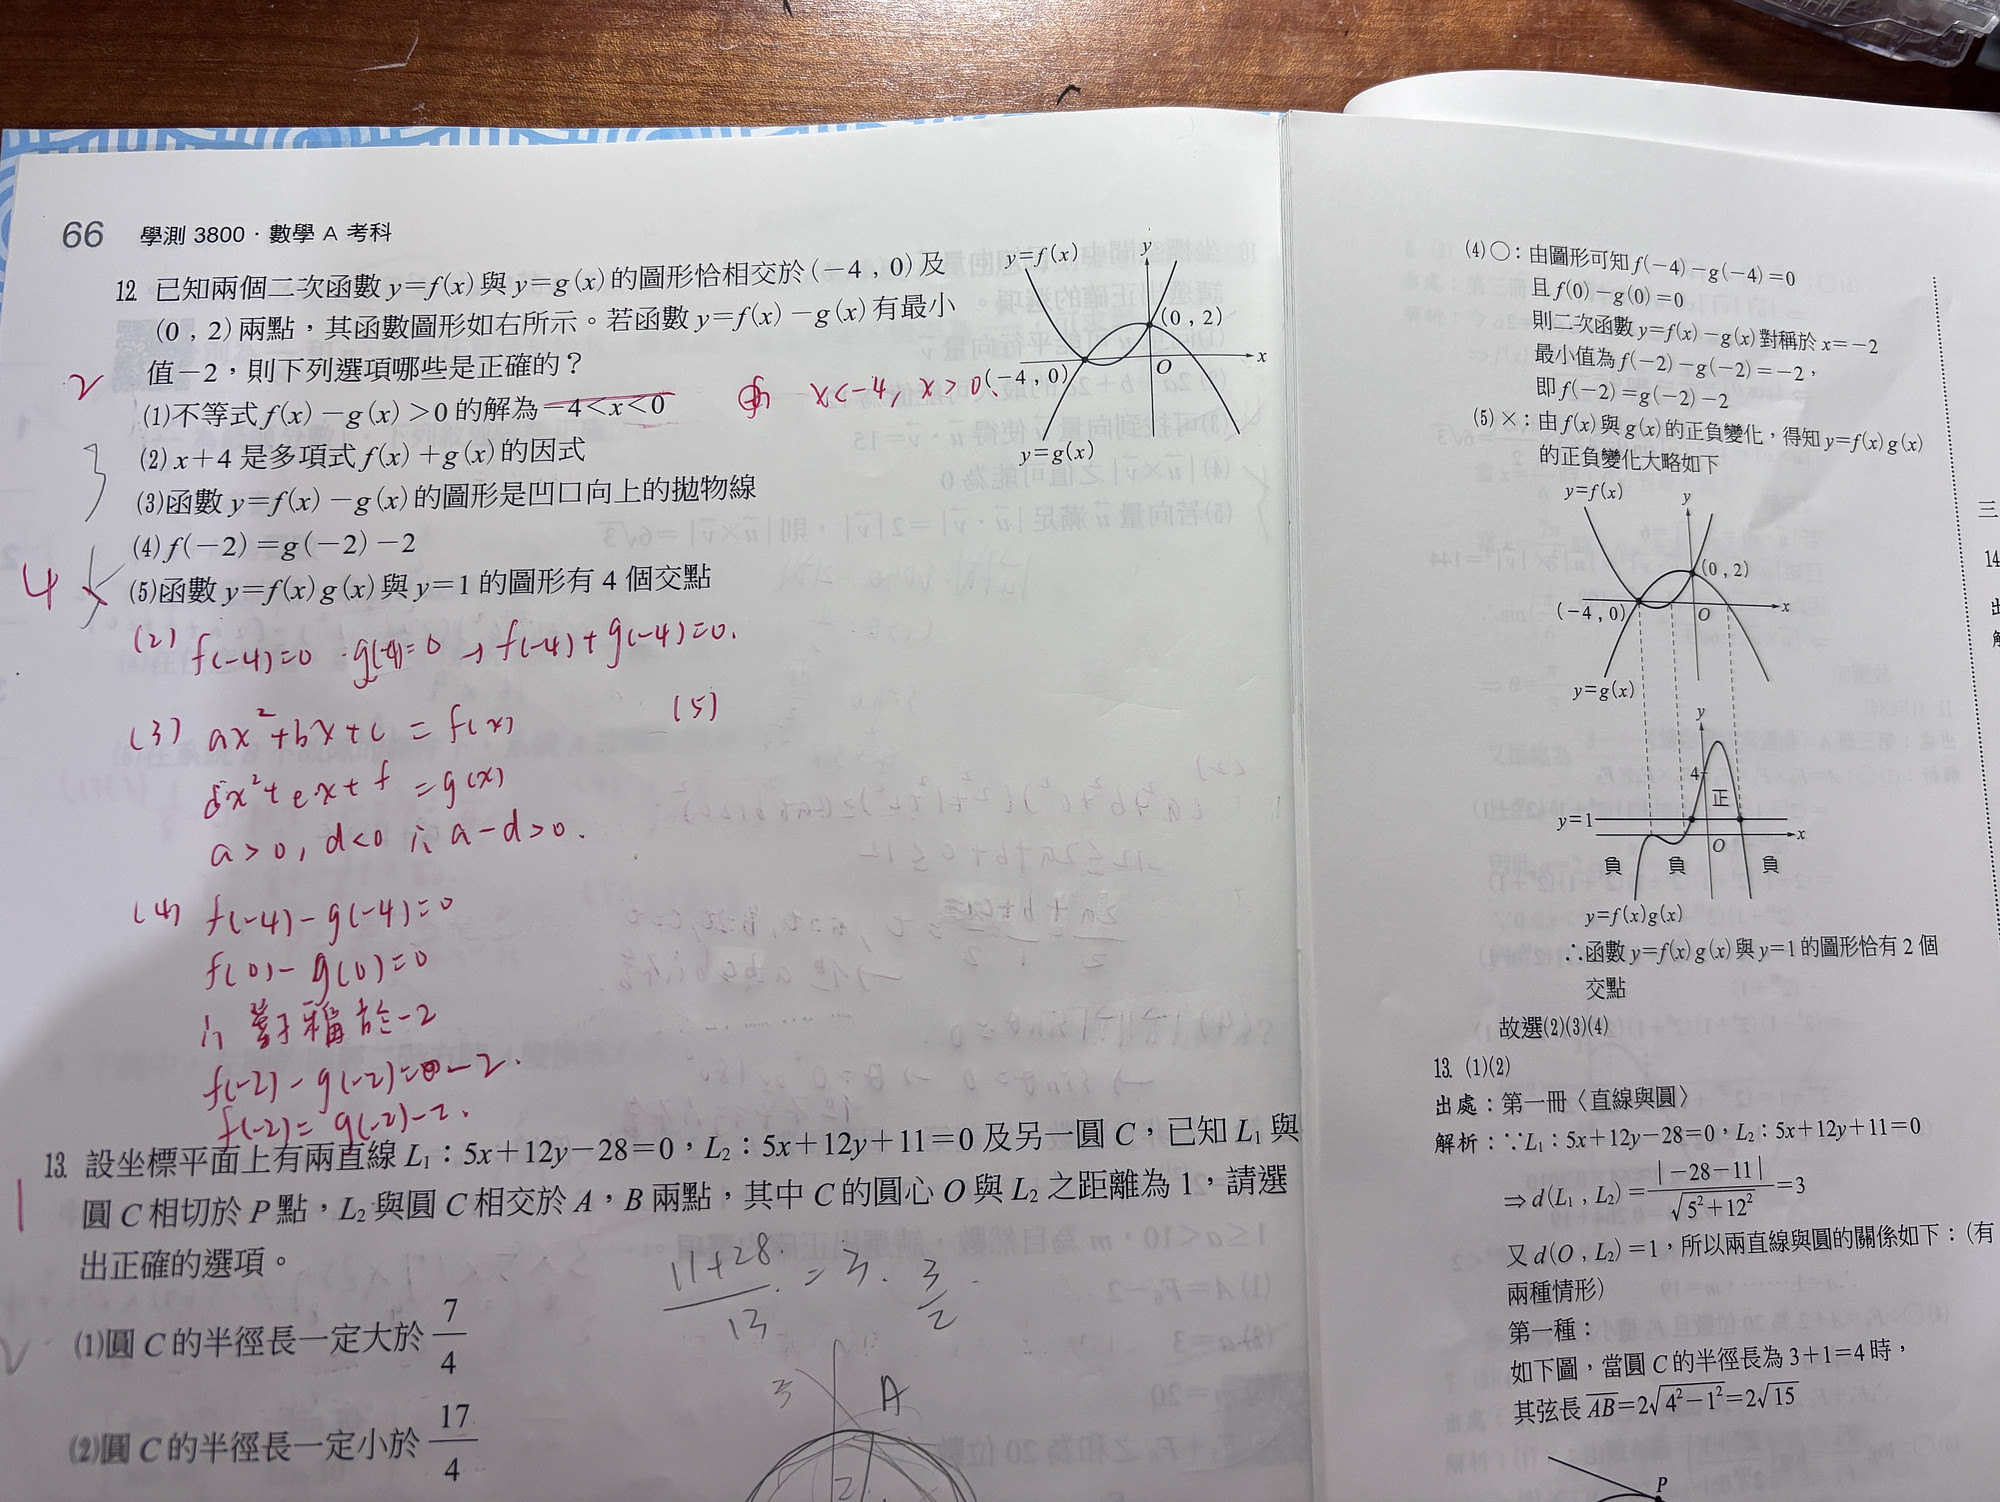 66 學測 3800·數學 A 考科
12. 已知兩個二次函數 y=f(x) 與 y=g(x) 的圖形恰相交於 (-4,0) 及
(0,2) 兩點,其函數圖形如右所示。若函數 y=f(x)-g(x) 有最小
值-2,則下列選項哪些是正確的?
y=f(x)
y
(0,2)
x
(-4,0)
O
y=g(x)
2
(1)不等式 f(x)-g(x)>0 的解為 -4<x<0
x<-4, x>0.
(2) x+4 是多項式 f(x)+g(x) 的因式
3
(3)函數 y=f(x)-g(x) 的圖形是凹口向上的拋物線
(4) f(-2)=g(-2)-2
4
(5)函數 y=f(x)g(x) 與 y=1 的圖形有 4 個交點
(2) f(-4)=0 g(-4)=0 → f(-4)+g(-4)=0.
(3) ax²+bx+c = f(x)
dx²+ex+f = g(x)
a>0, d<0 ∴ a-d>0.
(5)
(4) f(-4)-g(-4)=0
f(0)-g(0)=0
∴ 對稱於-2
f(-2)-g(-2)=-2.
f(-2)=g(-2)-2.
1
13. 設坐標平面上有兩直線 L₁:5x+12y-28=0,L₂:5x+12y+11=0 及另一圓 C,已知 L₁ 與
圓 C 相切於 P 點,L₂ 與圓 C 相交於 A,B 兩點,其中 C 的圓心 O 與 L₂ 之距離為 1,請選
出正確的選項。
11+28/13 = 3. 3/2
(1)圓 C 的半徑長一定大於 7/4
2
(2)圓 C 的半徑長一定小於 17/4
3
A
2
(4)○:由圖形可知 f(-4)-g(-4)=0
且 f(0)-g(0)=0
則二次函數 y=f(x)-g(x) 對稱於 x=-2
最小值為 f(-2)-g(-2)=-2,
即 f(-2)=g(-2)-2
(5)×:由 f(x) 與 g(x) 的正負變化,得知 y=f(x)g(x)
的正負變化大略如下
y=f(x)
y
(0,2)
x
(-4,0)
O
y=g(x)
y
4
正
y=1
x
O
負 負 負
y=f(x)g(x)
∴函數 y=f(x)g(x) 與 y=1 的圖形恰有 2 個
交點
故選(2)(3)(4)
13. (1)(2)
出處:第一冊〈直線與圓〉
解析:∵L₁:5x+12y-28=0,L₂:5x+12y+11=0
⇒d(L₁,L₂)=|-28-11|/√(5²+12²)=3
又 d(O,L₂)=1,所以兩直線與圓的關係如下:(有
兩種情形)
第一種:
如下圖,當圓 C 的半徑長為 3+1=4 時,
其弦長 AB=2√(4²-1²)=2√15
P
三
14
出
解